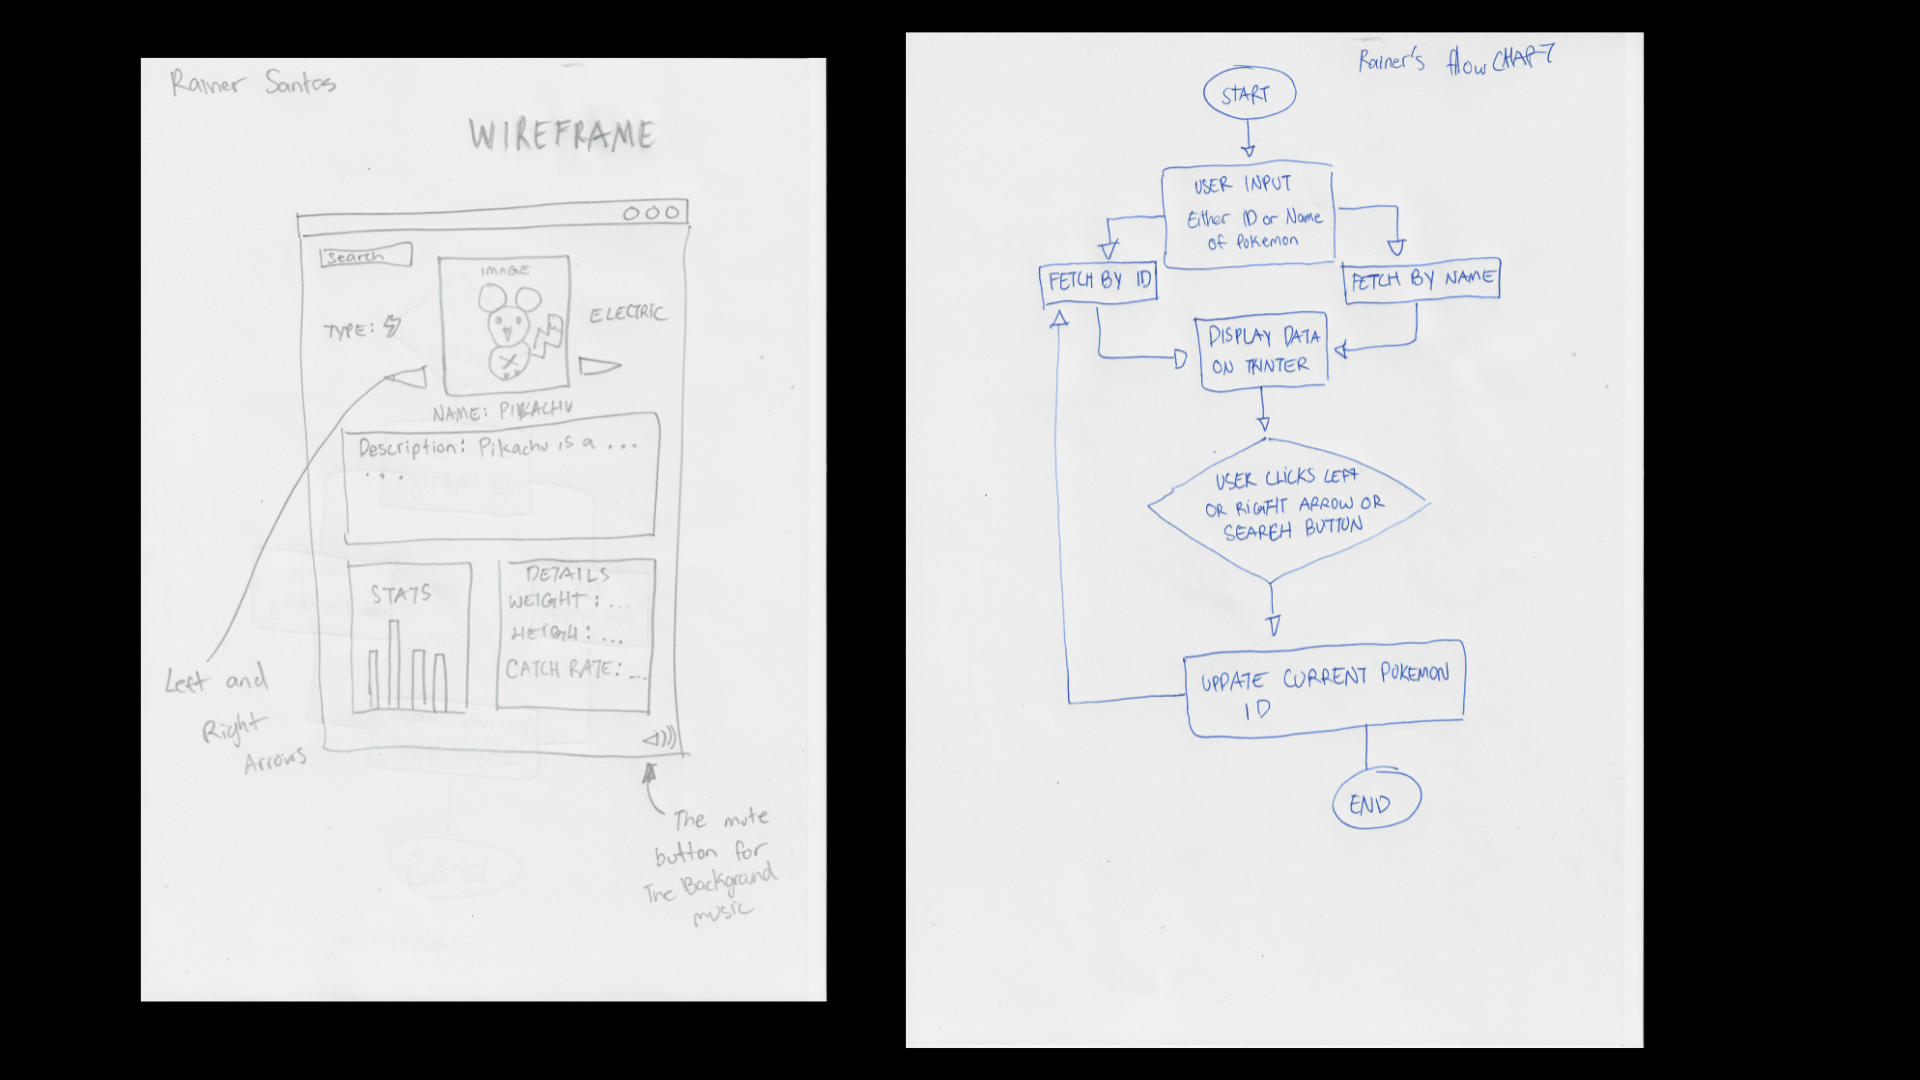 Rainer Santos
WIREFRAME
Search
IMAGE
TYPE:
ELECTRIC
NAME: PIKACHU
Description: Pikachu is a ...
...
STATS
DETAILS
WEIGHT : ...
HEIGH : ...
CATCH RATE: ...
Left and
Right
Arrows
The mute
button for
The Background
music
Rainer's flowCHART
START
USER INPUT
Either ID or Name
of Pokemon
FETCH BY ID
FETCH BY NAME
DISPLAY DATA
ON TKINTER
USER CLICKS LEFT
OR RIGHT ARROW OR
SEARCH BUTTON
UPDATE CURRENT POKEMON
ID
END